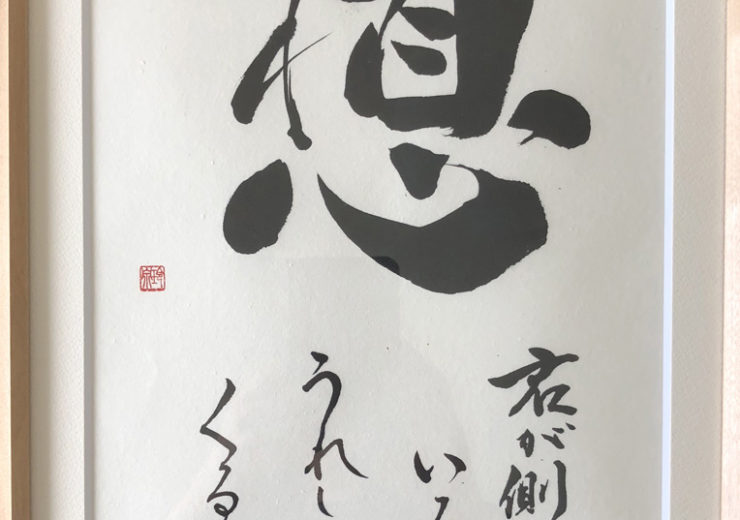 想
君が側
い
うれし
くる